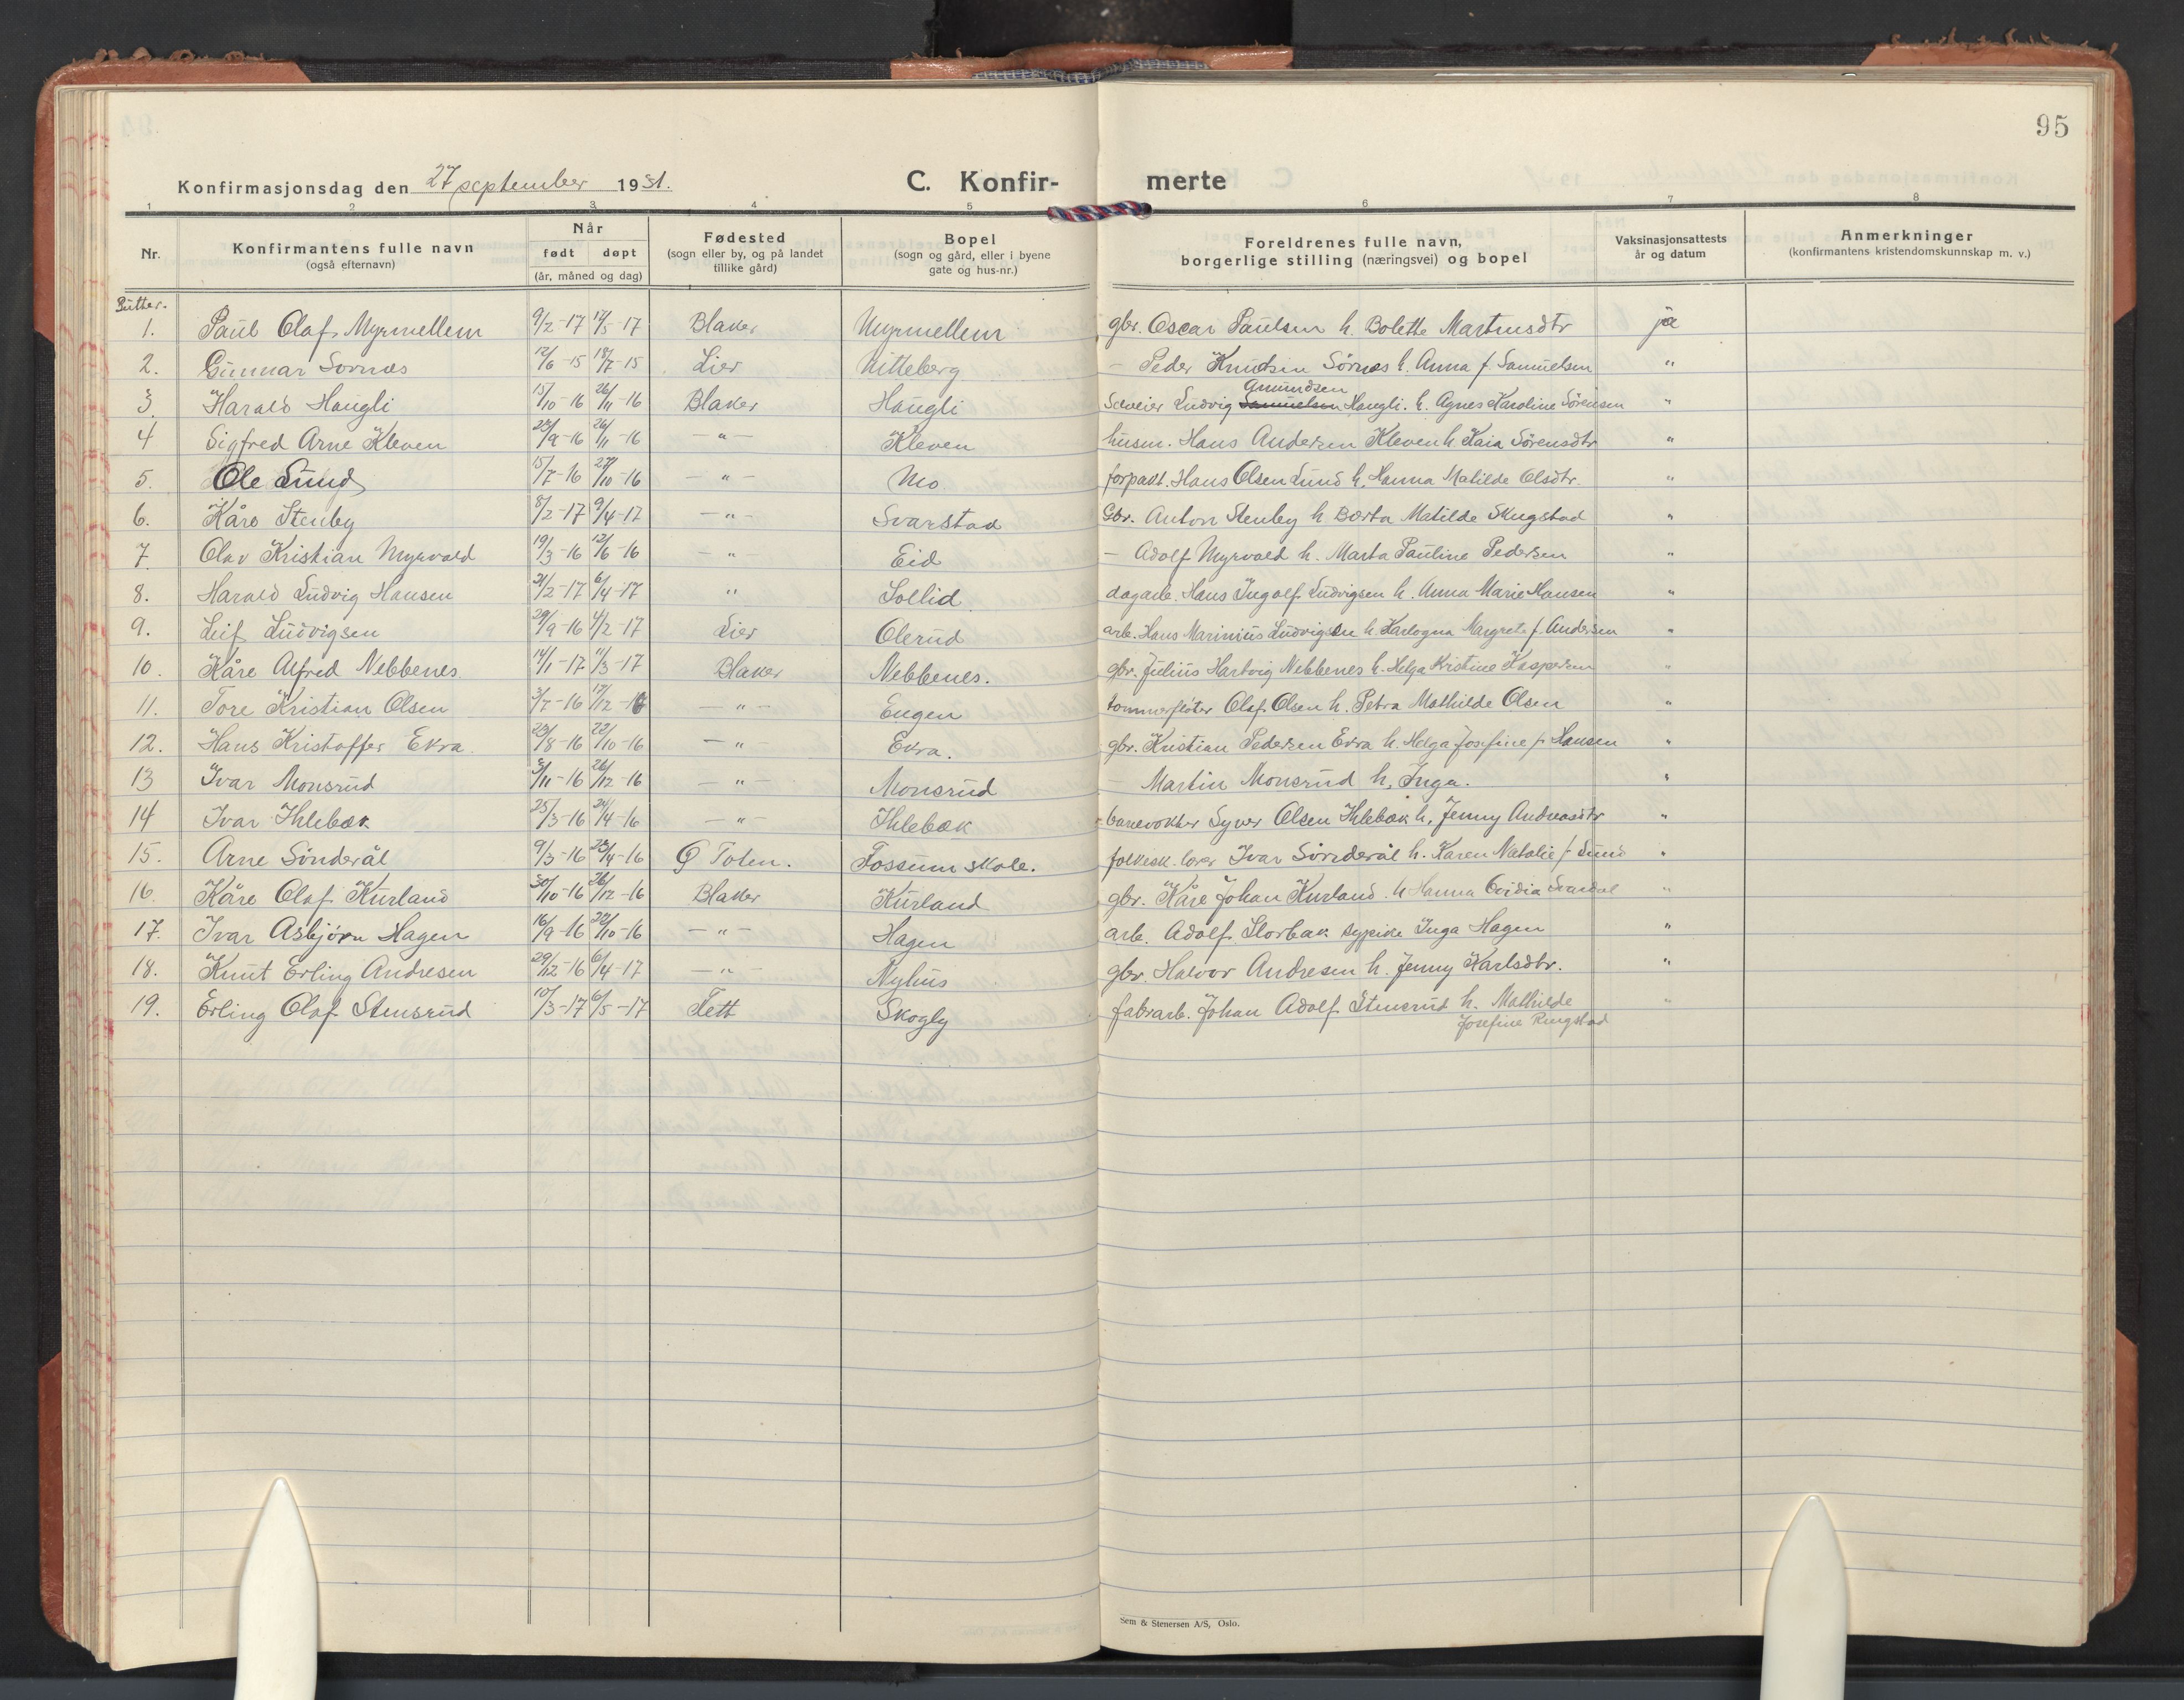 95
Konfirmasjonsdag den 27 september 1931. C. Konfir- merte
1 2 3 4 5 6 7 8
Nr. Konfirmantens fulle navn (også efternavn) Når født døpt (år, måned og dag) Fødested (sogn eller by, og på landet tillike gård) Bopel (sogn og gård, eller i byene gate og hus-nr.) Foreldrenes fulle navn, borgerlige stilling (næringsvei) og bopel Vaksinasjonsattests år og datum Anmerkninger (konfirmantens kristendomskunnskap m. v.)
Gutter.
1. Paul Olaf Myrmellem 9/2-17 17/5-17 Blaker Myrmellem gbr. Oscar Paulsen h. Bolette Martinsdtr ja
2. Gunnar Sørnes 12/6-15 18/7-15 Lier Nitteberg — Peder Knudsen Sørnes h. Anna f. Samuelsen "
Amundsen
3. Harald Haugli 15/10-16 26/11-16 Blaker Haugli Selveier Ludvig Samuelsen Haugli. h. Agnes Karoline Sørensen "
4 Sigfred Arne Kleven 23/9-16 26/11-16 — " — Kleven husm. Hans Andersen Kleven h Kaia Sørensdtr "
5. Ole Lund 15/7-16 27/10-16 — " — Mo forpakt. Hans Olsen Lund h. Hanna Matilde Olsdtr. "
6. Kåre Stenby 8/2-17 9/4-17 — " — Svarstad Gbr. Anton Stenby h Borta Matilde Skugstad "
7. Olav Kristian Myrvold 19/3-16 12/6-16 — " — Eid — Adolf Myrvold h. Marta Pauline Pedersen "
8. Harald Ludvig Hansen 21/2-17 6/4-17 " Sollid dagarb. Hans Ingolf Ludvigsen h. Anna Marie Hansen "
9. Leif Ludvigsen 29/9-16 4/2-17 Lier Olerud arb. Hans Marinius Ludvigsen h. Karlogna Margrete f. Andersen "
10. Kåre Alfred Nebbenes 14/1-17 11/3-17 Blaker Nebbenes. gbr. Julius Hartvig Nebbenes h. Helga Kristine Kaspersen "
11. Tore Kristian Olsen 3/7-16 17/12-16 — " — Engen tømmerfløter Olaf Olsen h. Petra Mathilde Olsen "
12. Hans Kristoffer Ekra 23/8-16 22/10-16 — " — Ekra. gbr. Kristian Pedersen Ekra h. Helga Josefine f. Hansen "
13 Ivar Monsrud 5/11-16 26/12-16 — " — Monsrud — Martin Monsrud h, Inga. "
14 Ivar Ihlebæk 25/3-16 24/4-16 — " — Ihlebæk banevokter Syver Olsen Ihlebæk h, Jenny Andreasdtr "
15. Arne Sønderål 9/3-16 23/4-16 Ø Toten. Fossum skole. folkesk. lærer Ivar Sønderål h. Karen Natalie f Lund "
16. Kåre Olaf Kurland 30/10-16 26/12-16 Blaker Kurland gbr. Kåre Johan Kurland. h Hanna Ovidia Svardal "
17. Ivar Asbjørn Hagen 16/9-16 22/10-16 — " — Hagen arb. Adolf Storbæk sypike Inga Hagen "
18. Knut Erling Andresen 29/12-16 6/4-17 — " — Nyhus gbr. Halvor Andresen h. Jenny Karlsdtr. "
19. Erling Olaf Stensrud 10/3-17 6/5-17 Fett Skogly fabrarb. Johan Adolf Stensrud h. Mathilde "
Josefine Ringstad
Sem & Stenersen A/S, Oslo.